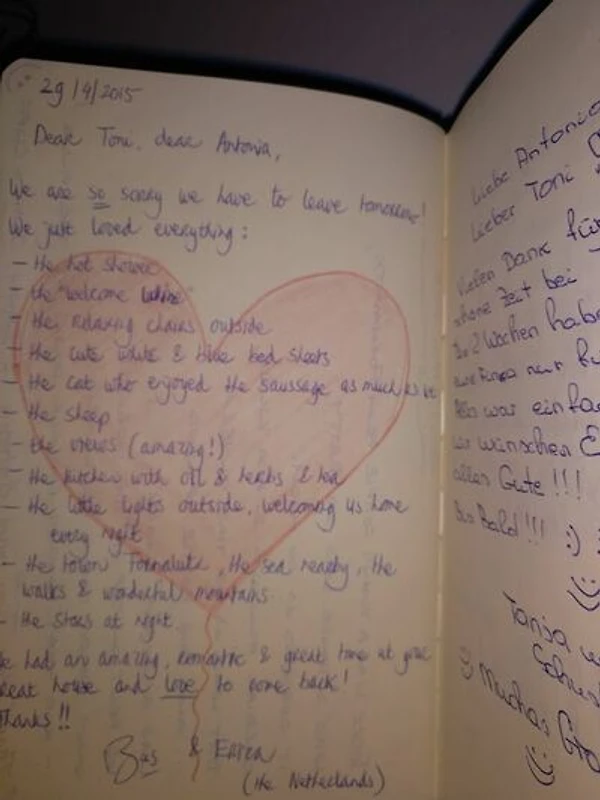 29/4/2015
Dear Toni, dear Antonia,
We are so sorry we have to leave tomorrow!
We just loved everything:
- the hot shower
- the "welcome
- the relaxing chairs outside
- the cute white & blue bed sheets
- the cat who enjoyed the saussage as much as we
- the sheep
- the views (amazing!)
- the kitchen with oil & herbs & tea
- the little lights outside, welcoming us home
every night
- the town Fornalutx, the sea nearby, the
walks & wonderful mountains
- the stars at night.
had an amazing, romantic & great time at your
house and love to come back!
Thanks!!
& 
(the Netherlands)
Liebe Antonia
Lieber Toni
Vielen Dank für
schöne Zeit bei
2 Wochen habe
nur
Alles war einfa
wir wünschen E
alles Gute!!!
Bis Bald!!! :)
Tanja u
:) Muchas Gra